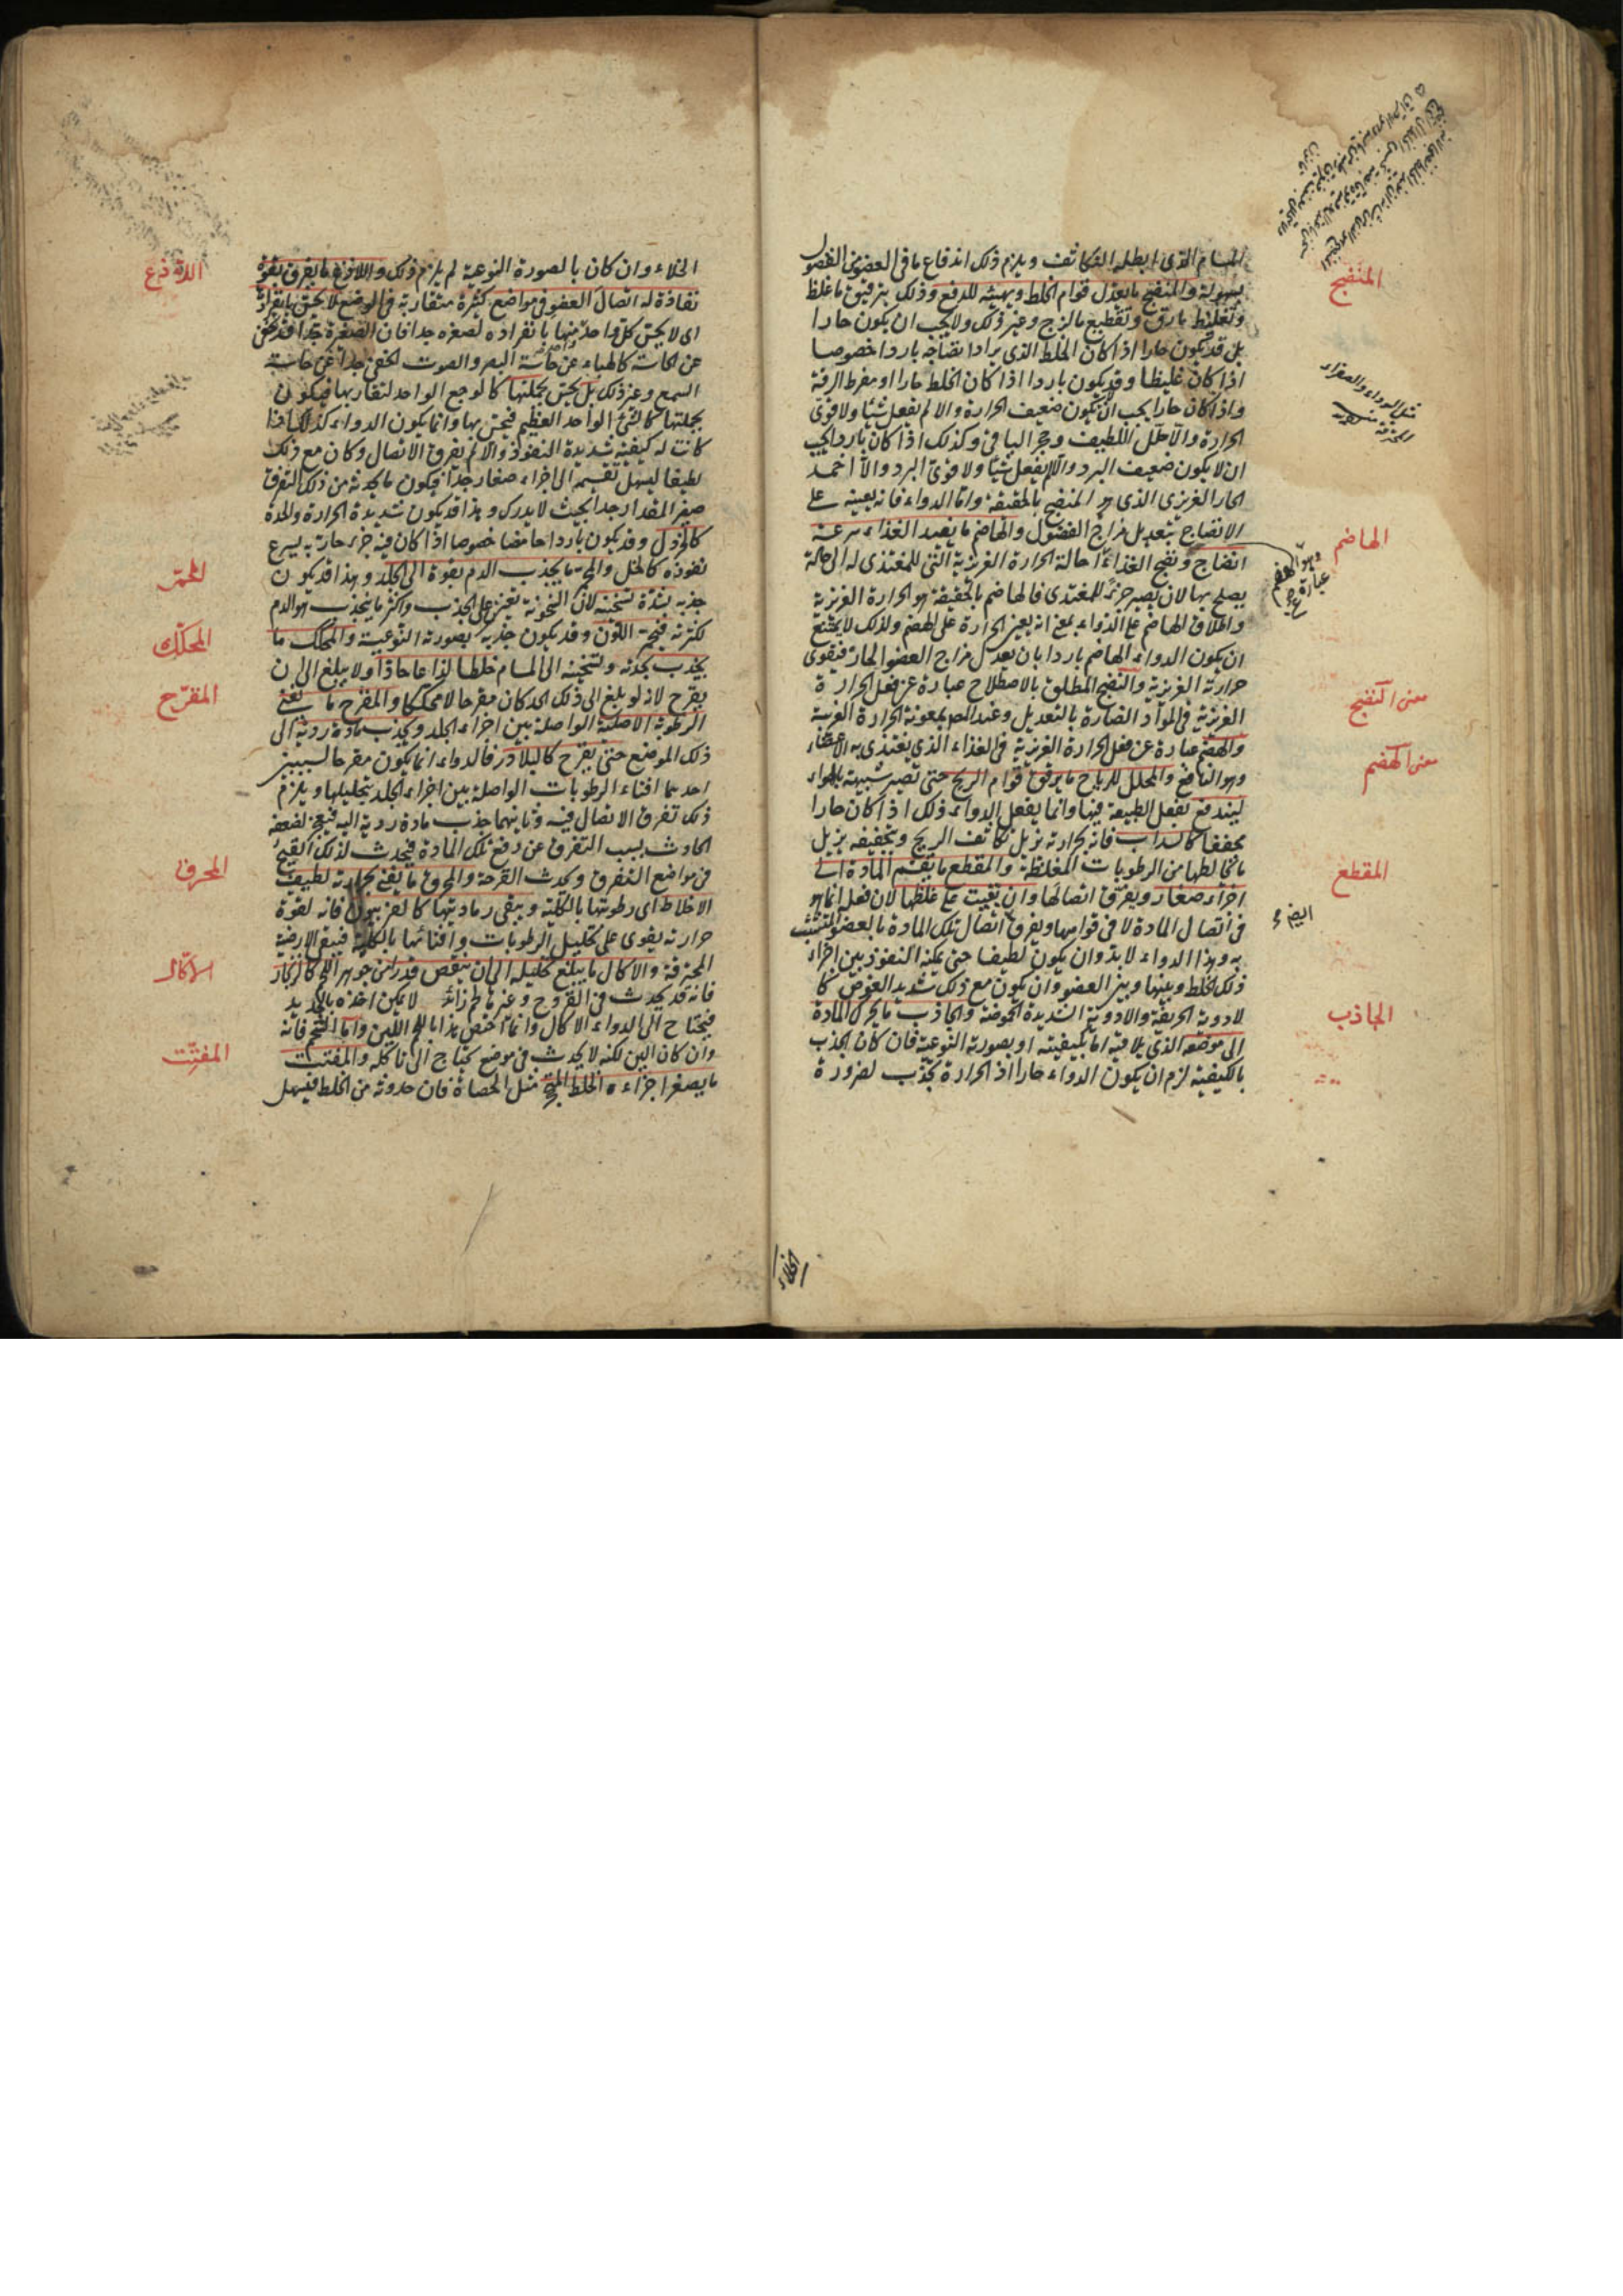 المسام الذى ابطله التكاثف ويلزم ذلك اندفاع ما فى العضو من الفضول
بسهولة والمنضج ما يعدل قوام الخلط ويهيئه للدفع وذلك بترقيق ما غلظ
وتغليظ ما رق وتقطيع ما لزج وغير ذلك ولا يجب ان يكون حارا
بل قد يكون حارا اذا كان الخلط الذى يراد انضاجه باردا خصوصا
اذا كان غليظا وقد يكون باردا اذا كان الخلط حارا او مفرط الرقة
واذا كان حارا يجب ان يكون ضعيف الحرارة والا لم يفعل شيئا ولا قوى
الحرارة والا حلل اللطيف وحجر الباقى وكذلك اذا كان باردا يجب
ان لا يكون ضعيف البرد والا لم يفعل شيئا ولا قوى البرد والا اخمد
الحار الغريزى الذى هو المنضج بالحقيقة واما الدواء فانه يعينه على
الانضاج بتعديل مزاج الفضول والهاضم ما يفيد الغذاء سرعة
انضاج ونضج الغذاء احالة الحرارة الغريزية التى للمغتذى له الى حالة
يصلح بها لان يصير جزء للمغتذى فالهاضم بالحقيقة هو الحرارة الغريزية
واطلاق الهاضم على الدواء بمعنى انه يعين الحرارة على الهضم ولذلك لا يمتنع
ان يكون الدواء الهاضم باردا بان يعدل مزاج العضو الحار فيقوى
حرارته الغريزية والنضج المطلق بالاصطلاح عبارة عن فعل الحرارة
الغريزية فى المواد الضارة بالتعديل وعند المص بمعونة الحرارة الغريبة
والهضم عبارة عن فعل الحرارة الغريزية فى الغذاء الذى يغتذى به الاعضاء
وهو النافع والمحلل للرياح ما يرقق قوام الريح حتى تصير شبيهة بالهواء
ليندفع بفعل الطبيعة فيها وانما يفعل الدواء ذلك اذا كان حارا
مجففا كالسداب فانه بحرارته يزيل تكاثف الريح وبتجفيفه يزيل
ما يخالطها من الرطوبات المغلظة والمقطع ما يقسم المادة الى
اجزاء صغار ويفرق اتصالها وان بقيت على غلظها لان فعله انما هو
فى اتصال المادة لا فى قوامها ويفرق اتصال تلك المادة بالعضو المتشبث
به وهذا الدواء لا بد وان يكون لطيفا حتى يمكنه النفوذ بين اجزاء
ذلك الخلط وبينها وبين العضو وان يكون مع ذلك شديد الغوص كا
لادوية الحريفة والادوية الشديدة الحموضة والجاذب ما يحرك المادة
الى موضعه الذى يلاقيه اما بكيفيته او بصورته النوعية فان كان الجذب
بالكيفية لزم ان يكون الدواء حارا اذ الحرارة تجذب لضرورة
المنضج
مثل السوداء والصفراء
الهاضم
وهو الهضم
عبارة
معنى النضج
معنى الهضم
المقطع
ايضا
الجاذب
الخلاء
الخلاء وان كان بالصورة النوعية لم يلزم ذلك واللاذع ما يفرق بقوة
نفاذة له اتصال العضو فى مواضع كثيرة متقاربة فى الوضع لا يحس بانفراد
اى لا يحس كل واحد منها بانفراده لصغره جدا فان الصغيرة جدا قد تخفى
عن الحاسة كالهباء عن حاسة البصر والصوت الخفى جدا عن حاسة
السمع وغير ذلك بل يحس بجملتها كالوجع الواحد لتقاربها فيكون
بجملتها كالشئ الواحد العظيم فيحس بها وانما يكون الدواء كذلك اذا
كانت له كيفية شديدة النفوذ والا لم يفرق الاتصال وكان مع ذلك
لطيفا ليسهل تقسيمه الى اجزاء صغار جدا فيكون ما يحدثه من ذلك التفرق
صغير المقدار جدا بحيث لا يدرك وهذا قد يكون شديدة الحرارة والحدة
كالخردل وقد يكون باردا حامضا خصوصا اذا كان فيه جزء حار به يسرع
نفوذه كالخل والمحمر ما يجذب الدم بقوة الى الجلد وهذا قد يكون
جذبه بشدة تسخينه لان السخونة تعين على الجذب واكثر ما ينجذب هو الدم
لكثرته فيحمر اللون وقد يكون جذبه بصورته النوعية والمحكك ما
يجذب بحدته وتسخينه الى المسام خلطا لذاعا حادا ولا يبلغ الى ان
يقرح لانه لو بلغ الى ذلك الحد كان مقرحا لا محككا والمقرح ما يفنى
الرطوبة الاصلية الواصلة بين اجزاء الجلد ويجذب مادة ردية الى
ذلك الموضع حتى يقرح كالبلادر فالدواء انما يكون مقرحا لسببين
احدهما افناء الرطوبات الواصلة بين اجزاء الجلد بتحليلها ويلزم
ذلك تفرق الاتصال فيه وثانيهما جذب مادة ردية اليه فيعجز لضعفه
الحادث بسبب التفرق عن دفع تلك المادة فيحدث لذلك القيح
فى مواضع التفرق ويحدث القرحة والمحرق ما يفنى بحرارته لطيف
الاخلاط اى رطوبتها بالكلية ويبقى رماديتها كالفربيون فانه لقوة
حرارته يقوى على تحليل الرطوبات وافنائها بالكلية فيبقى الارضية
المحترقة والاكال ما يبلغ تحليله الى ان ينقص قدرا من جوهر اللحم كالزنجار
فانه قد يحدث فى القروح وغيره لحم زائد لا يمكن اخذه بالحديد
فيحتاج الى الدواء الاكال وانما اختص هذا باللحم اللين واما الشحم فانه
وان كان الين لكنه لا يحدث فى موضع يحتاج الى تاكله والمفتت
ما يصغر اجزاءه الخلط المتحجر مثل الحصاة فان حدوثه من الخلط فيسهل
اللاذع
المحمر
المحكك
المقرح
المحرق
الاكال
المفتت